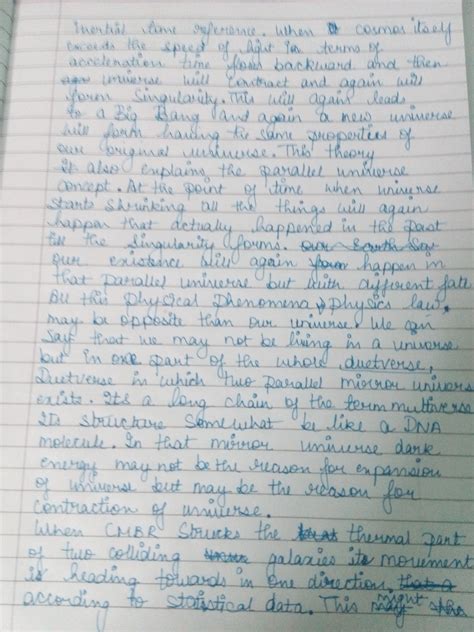 Inertial time reference. When cosmos itself
exceeds the speed of light in terms of
acceleration time flows backward and then
universe will contract and again will
form Singularity. This will again leads
to a Big Bang and again a new universe
will form having the same properties of
our original universe. This theory
It also explains the parallel universe
concept. At the point of time when universe
starts shrinking all the things will again
happen that actually happened in the past
till the singularity forms.
our existence will again happen in
that parallel universe but with different fate
All this physical phenomena physics law.
may be opposite than our universe. We can
say that we may not be living in a universe
but in one part of the whole duetverse,
Duetverse in which two parallel mirror univers
exists. Its a long chain of the term multiverse
Its structure somewhat be like a DNA
molecule. In that mirror universe dark
energy may not be the reason for expansion
of universe but may be the reason for
contraction of universe.
When CMBR Strucks the thermal part
of two colliding galaxies its movement
is heading towards in one direction
according to statistical data. This might